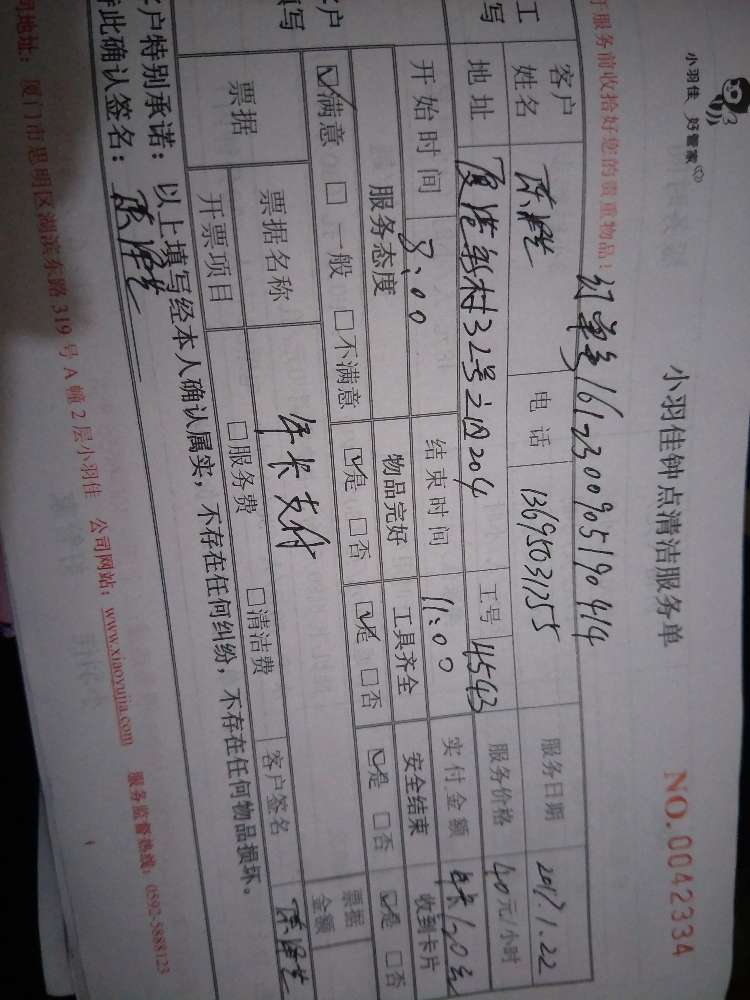 小羽佳 好管家
小羽佳钟点清洁服务单
NO.0042334
于服务前收拾好您的贵重物品!
订单号1612300905190414
工
写
客户姓名
电话 13695031255
服务日期 2017.1.22
地址 夏港新村32号之四204
工号 4543
服务价格 40元/小时
开始时间 8:00
结束时间 11:00
实付金额 120元
客户
填写
服务态度
物品完好
工具齐全
安全结束
收到卡片
☑满意 □一般 □不满意
☑是 □否
☑是 □否
☑是 □否
☑是 □否
票据
票据名称
年卡支付
客户签名
票据金额
开票项目
□服务费 □清洁费
客户特别承诺:以上填写经本人确认属实,不存在任何纠纷,不存在任何物品损坏。
特此确认签名:
公司地址:厦门市思明区湖滨东路319号A幢2层小羽佳 公司网站:www.xiaoyujia.com 服务监督热线:0592-5888123